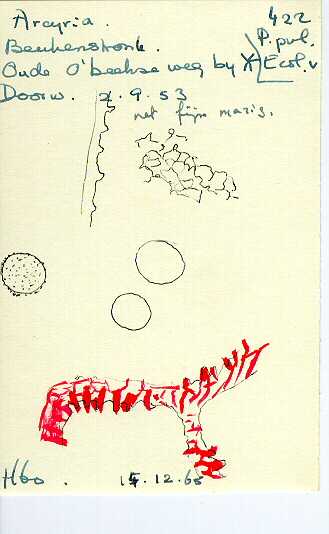 Arcyria. 422
Beukenstronk. P. pul.
Oude O'beekse weg by Ecol.
Doorw. 2.9.53
net fijn mazig.
H60. 15.12.60